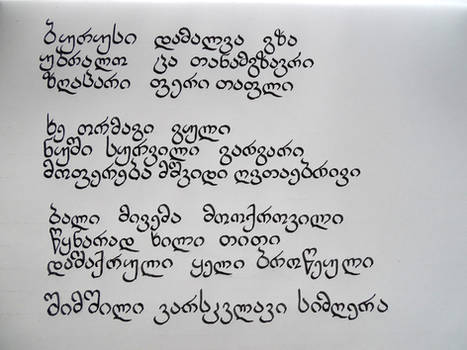 ბურუსი დამალვა გზა
უბრალო ცა თანამგზავრი
ზღაპარი ფერი თაფლი
ხე ორმაგი გული
ნუში სურვილი გარგარი
მოფერება მშვიდი ღვთაებრივი
ბალი მიცემა მოოქროვილი
წყნარად ხილი თითი
დაშაქრული ყელი ბროწეული
შიმშილი ვარსკვლავი სიმღერა